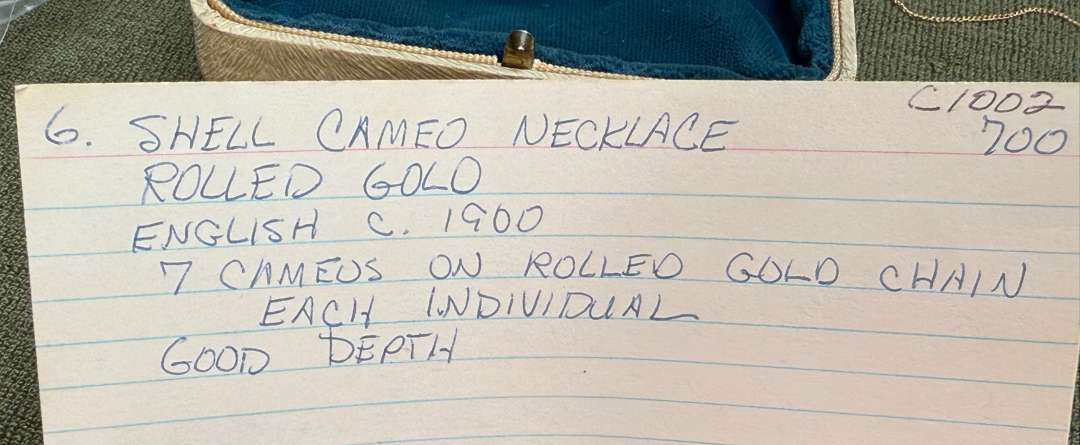 C1002
6. SHELL CAMEO NECKLACE 700
ROLLED GOLD
ENGLISH C. 1900
7 CAMEOS ON ROLLED GOLD CHAIN
EACH INDIVIDUAL
GOOD DEPTH